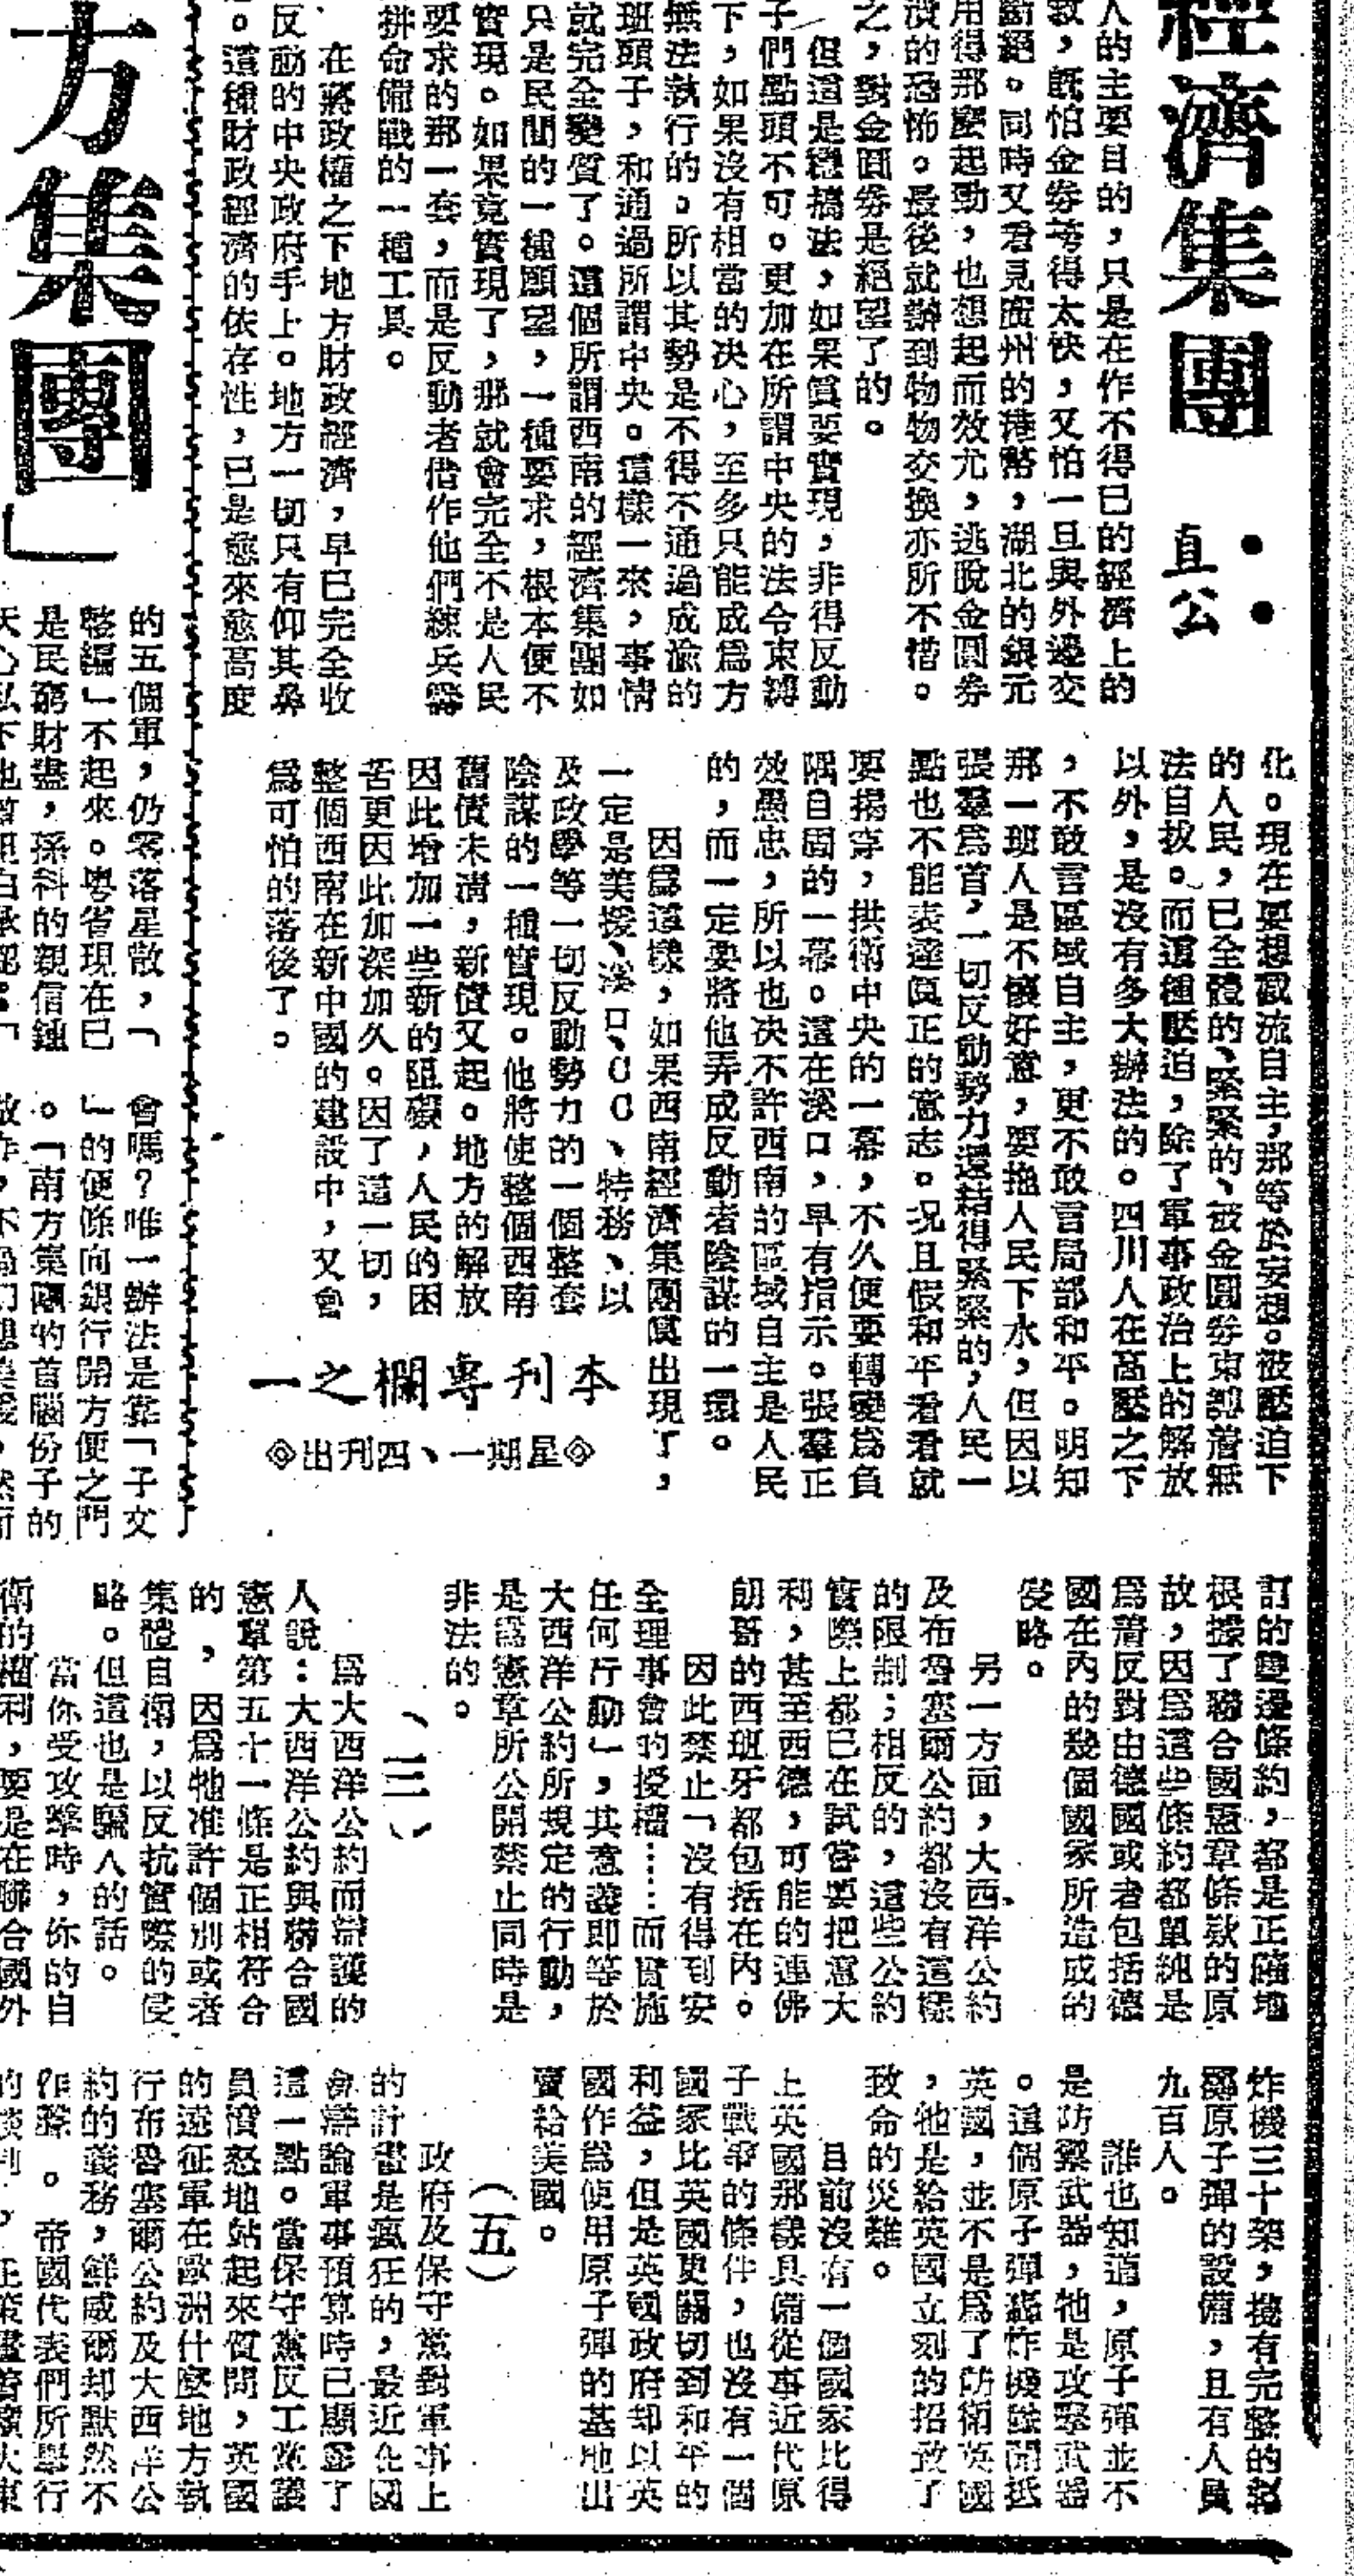 經濟集團
直公
人的主要目的，只是在作不得已的經濟上的
救，既怕金券垮得太快，又怕一旦與外邊交
斷絕。同時又看見廣州的港幣，湖北的銀元
用得那麼起勁，也想起而效尤，逃脫金圓券
潰的恐怖。最後就辦到物物交換亦所不惜。
之，對金圓券是絕望了的。
但這是種搞法，如果眞要實現，非得反動
子們點頭不可。更加在所謂中央的法令束縛
下，如果沒有相當的決心，至多只能成爲方
無法執行的。所以其勢是不得不通過成渝的
班頭子，和通過所謂中央。這樣一來，事情
就完全變質了。這個所謂西南的經濟集團如
只是民間的一種願望，一種要求，根本便不
實現。如果竟實現了，那就會完全不是人民
要求的那一套，而是反動者借作他們練兵籌
拼命備戰的一種工具。
在蔣政權之下地方財政經濟，早已完全收
反動的中央政府手上。地方一切只有仰其鼻
。這種財政經濟的依存性，已是愈來愈高度
化。現在要想截流自主，那等於妄想。被壓迫下
的人民，已全體的、緊緊的、被金圓券束縛着無
法自拔。而這種壓迫，除了軍事政治上的解放
以外，是沒有多大辦法的。四川人在高壓之下
，不敢言區域自主，更不敢言局部和平。明知
那一班人是不懷好意，要拖人民下水，但因以
張羣爲首，一切反動勢力還結得緊緊的，人民一
點也不能表達眞正的意志。況且假和平看看就
要揭穿，拱衛中央的一幕，不久便要轉變爲負
隅自固的一幕。這在溪口，早有指示。張羣正
效愚忠，所以也决不許西南的區域自主是人民
的，而一定要將他弄成反動者陰謀的一環。
因爲這樣，如果西南經濟集團眞出現了，
一定是美援、溪口、CC、特務、以
及政學等一切反動勢力的一個整套
陰謀的一種實現。他將使整個西南
舊債未清，新債又起。地方的解放
因此增加一些新的阻礙，人民的困
苦更因此加深加久。因了這一切，
整個西南在新中國的建設中，又會
爲可怕的落後了。
本刊專欄之一
◈星期一、四刊出◈
方集團」
的五個軍，仍零落星散，「
整編」不起來。粵省現在已
是民窮財盡，孫科的親信鍾
會嗎？唯一辦法是靠「子文
」的便條向銀行開方便之門
。「南方集團」的首腦份子的
訂的雙邊條約，都是正確地
根據了聯合國憲章條款的原
故，因爲這些條約都單純是
爲着反對由德國或者包括德
國在內的幾個國家所造成的
侵略。
另一方面，大西洋公約
及布魯塞爾公約都沒有這樣
的限制；相反的，這些公約
實際上都已在試嘗要把意大
利，甚至西德，可能的連佛
朗哥的西班牙都包括在內。
因此禁止「沒有得到安
全理事會的授權……而實施
任何行動」，其意義即等於
大西洋公約所規定的行動，
是爲憲章所公開禁止同時是
非法的。
（三）
爲大西洋公約而辯護的
人說：大西洋公約與聯合國
憲章第五十一條是正相符合
的，因爲牠准許個別或者
集體自衛，以反抗實際的侵
略。但這也是騙人的話。
當你受攻擊時，你的自
衛的權利，要是在聯合國外
炸機三十架，擁有完整的裝
擲原子彈的設備，且有人員
九百人。
誰也知道，原子彈並不
是防禦武器，牠是攻擊武器
。這個原子彈轟炸機隊開抵
英國，並不是爲了防衛英國
，他是給英國立刻的招致了
致命的災難。
目前沒有一個國家比得
上英國那樣具備從事近代原
子戰爭的條件，也沒有一個
國家比英國更關切到和平的
利益，但是英國政府却以英
國作爲使用原子彈的基地出
賣給美國。
（五）
政府及保守黨對軍事上
的計畫是瘋狂的，最近在國
會辯論軍事預算時已顯露了
這一點。當保守黨反工黨議
員憤怒地站起來質問，英國
的遠征軍在歐洲什麼地方執
行布魯塞爾公約及大西洋公
約的義務，鮮威爾却默然不
作聲。帝國代表們所舉行